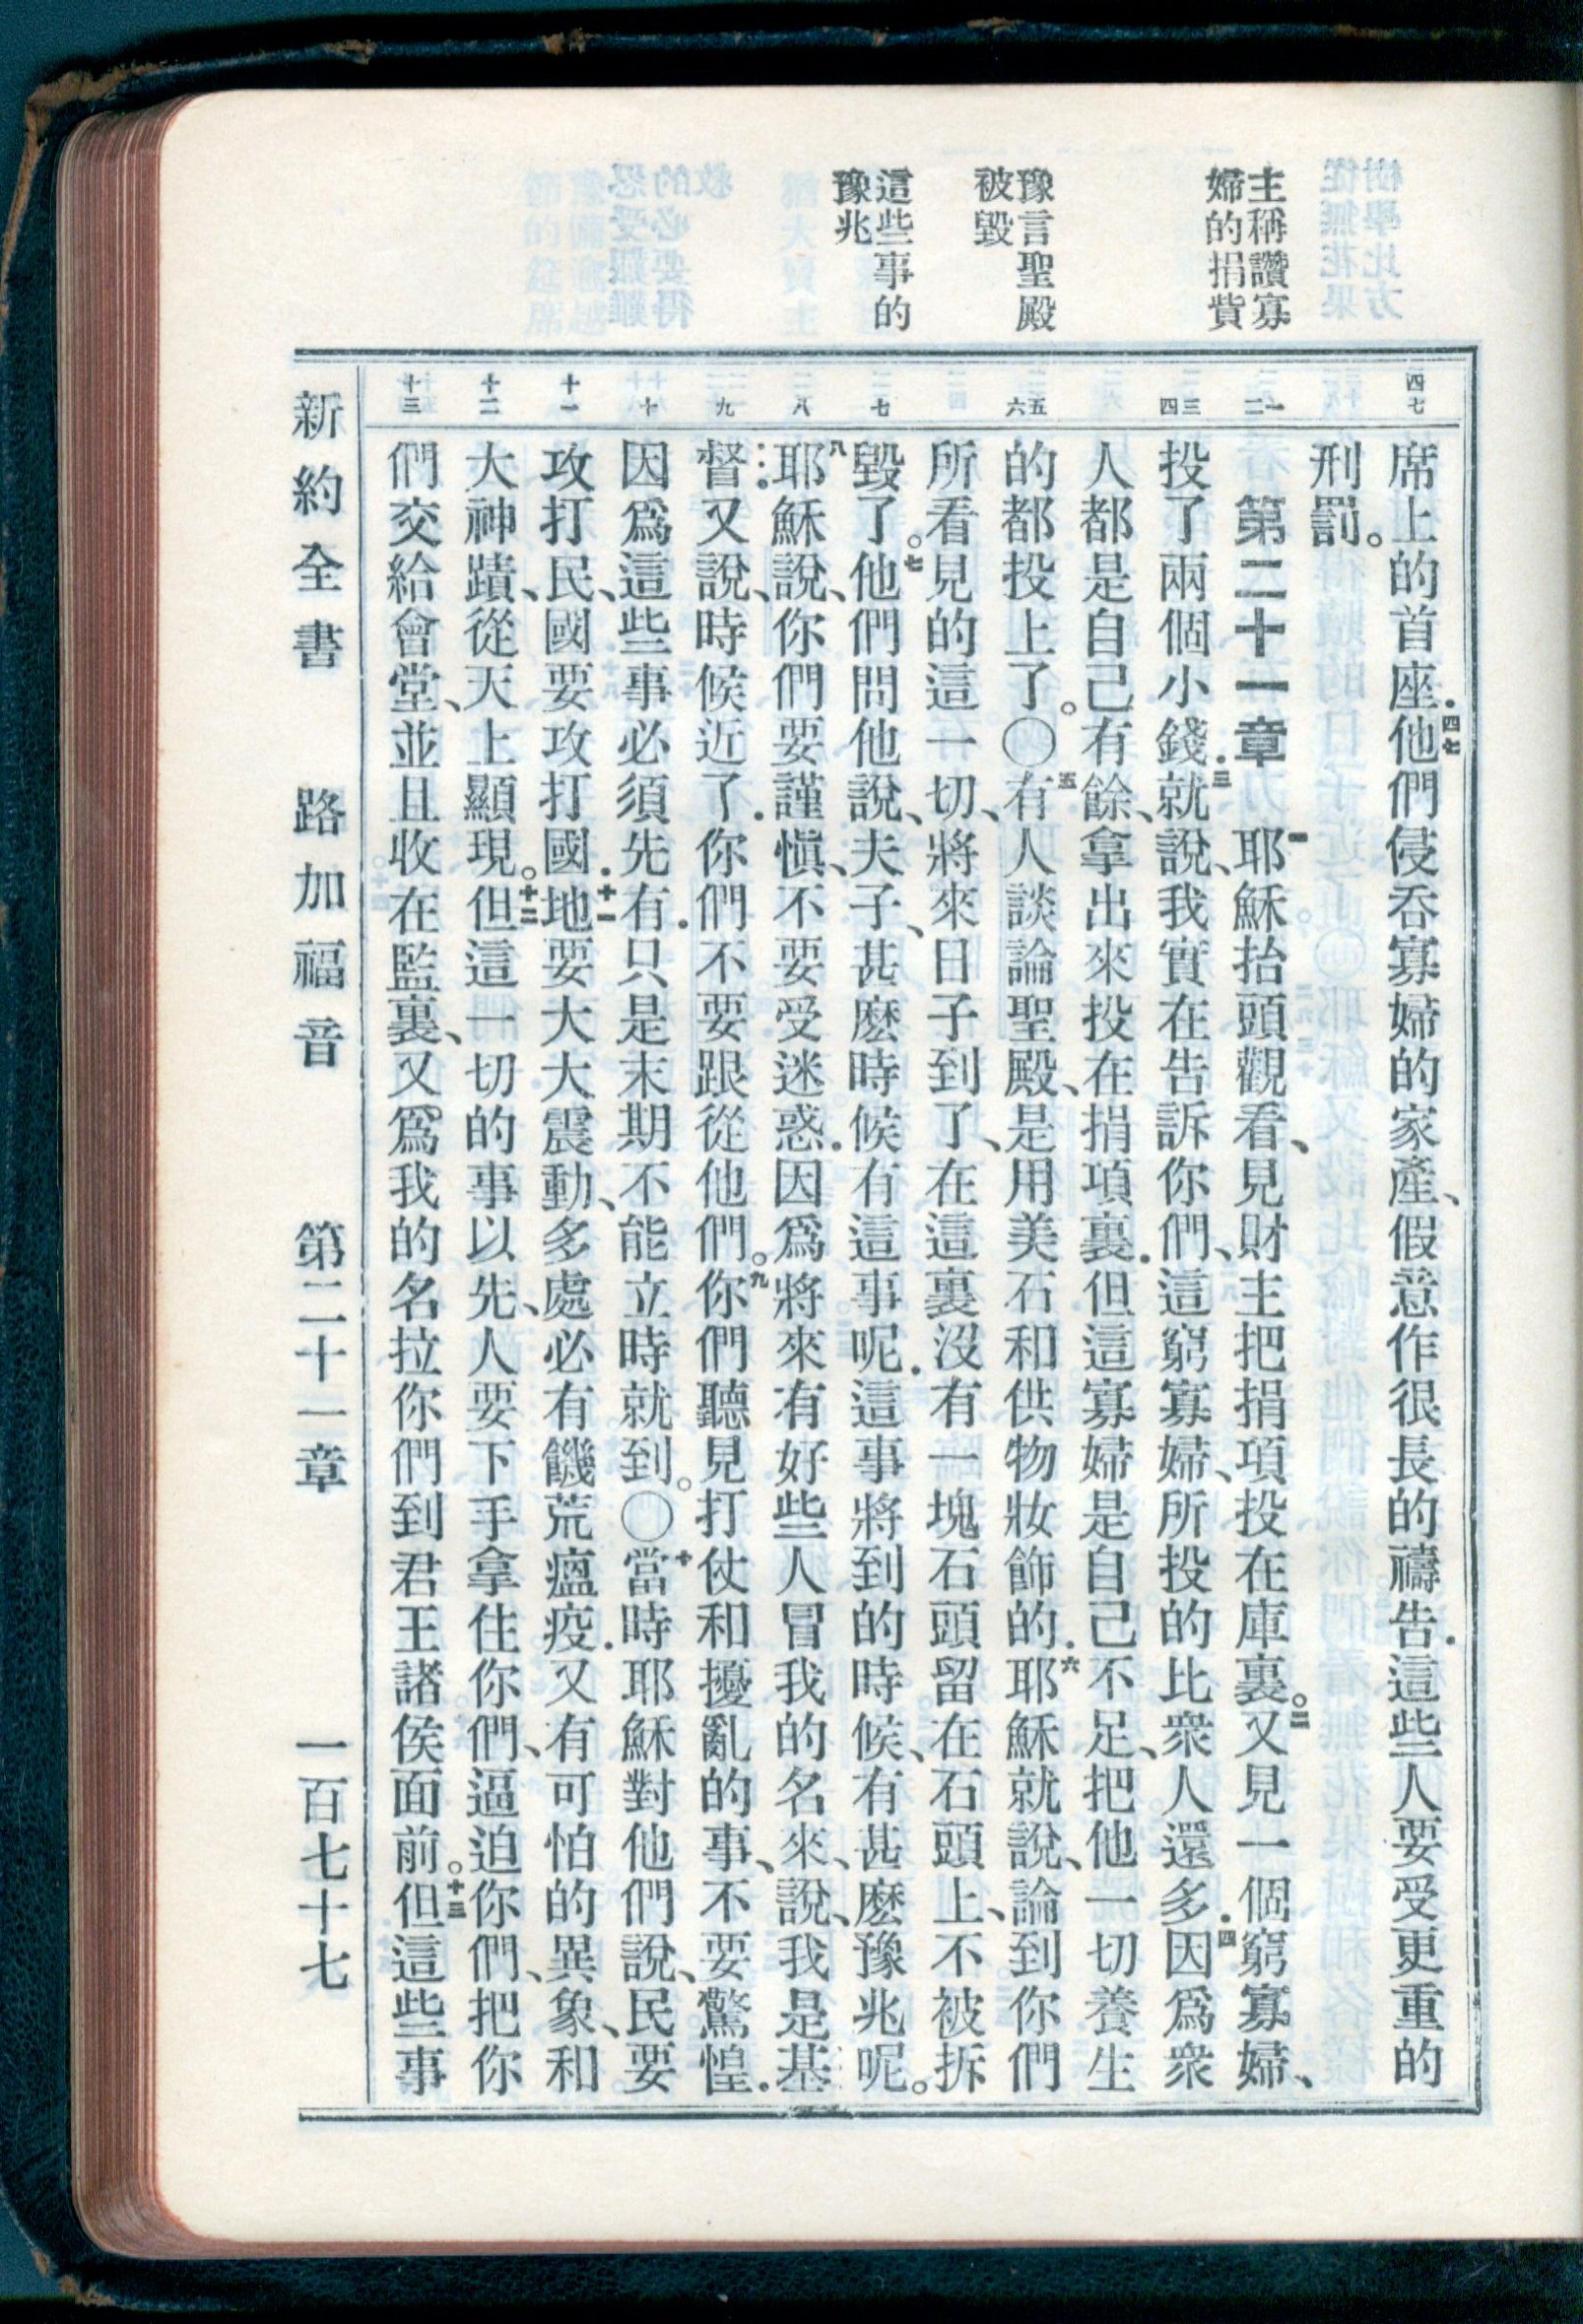 主稱讚寡
婦的捐貲
豫言聖殿
被毀
這些事的
豫兆
四七
一二
三四
五六
七
八
九
十
十一
十二
十三
席上的首座.四七他們侵吞寡婦的家產、假意作很長的禱告.這些人要受更重的
刑罰。
第二十一章 一耶穌抬頭觀看、見財主把捐項投在庫裏。二又見一個窮寡婦、
投了兩個小錢.三就說、我實在告訴你們、這窮寡婦、所投的比衆人還多.四因爲衆
人都是自己有餘、拿出來投在捐項裏.但這寡婦是自己不足、把他一切養生
的都投上了。○五有人談論聖殿、是用美石和供物妝飾的.六耶穌就說、論到你們
所看見的這一切、將來日子到了、在這裏沒有一塊石頭留在石頭上、不被拆
毀了。七他們問他說、夫子、甚麽時候有這事呢.這事將到的時候、有甚麽豫兆呢。
八耶穌說、你們要謹愼、不要受迷惑.因爲將來有好些人冒我的名來、說、我是基
督.又說、時候近了.你們不要跟從他們。九你們聽見打仗和擾亂的事、不要驚惶.
因爲這些事必須先有.只是末期不能立時就到。○十當時耶穌對他們說、民要
攻打民、國要攻打國.十一地要大大震動、多處必有饑荒瘟疫.又有可怕的異象、和
大神蹟、從天上顯現。十二但這一切的事以先、人要下手拿住你們、逼迫你們、把你
們交給會堂、並且收在監裏、又爲我的名拉你們到君王諸侯面前。十三但這些事
新約全書 路加福音 第二十一章 一百七十七